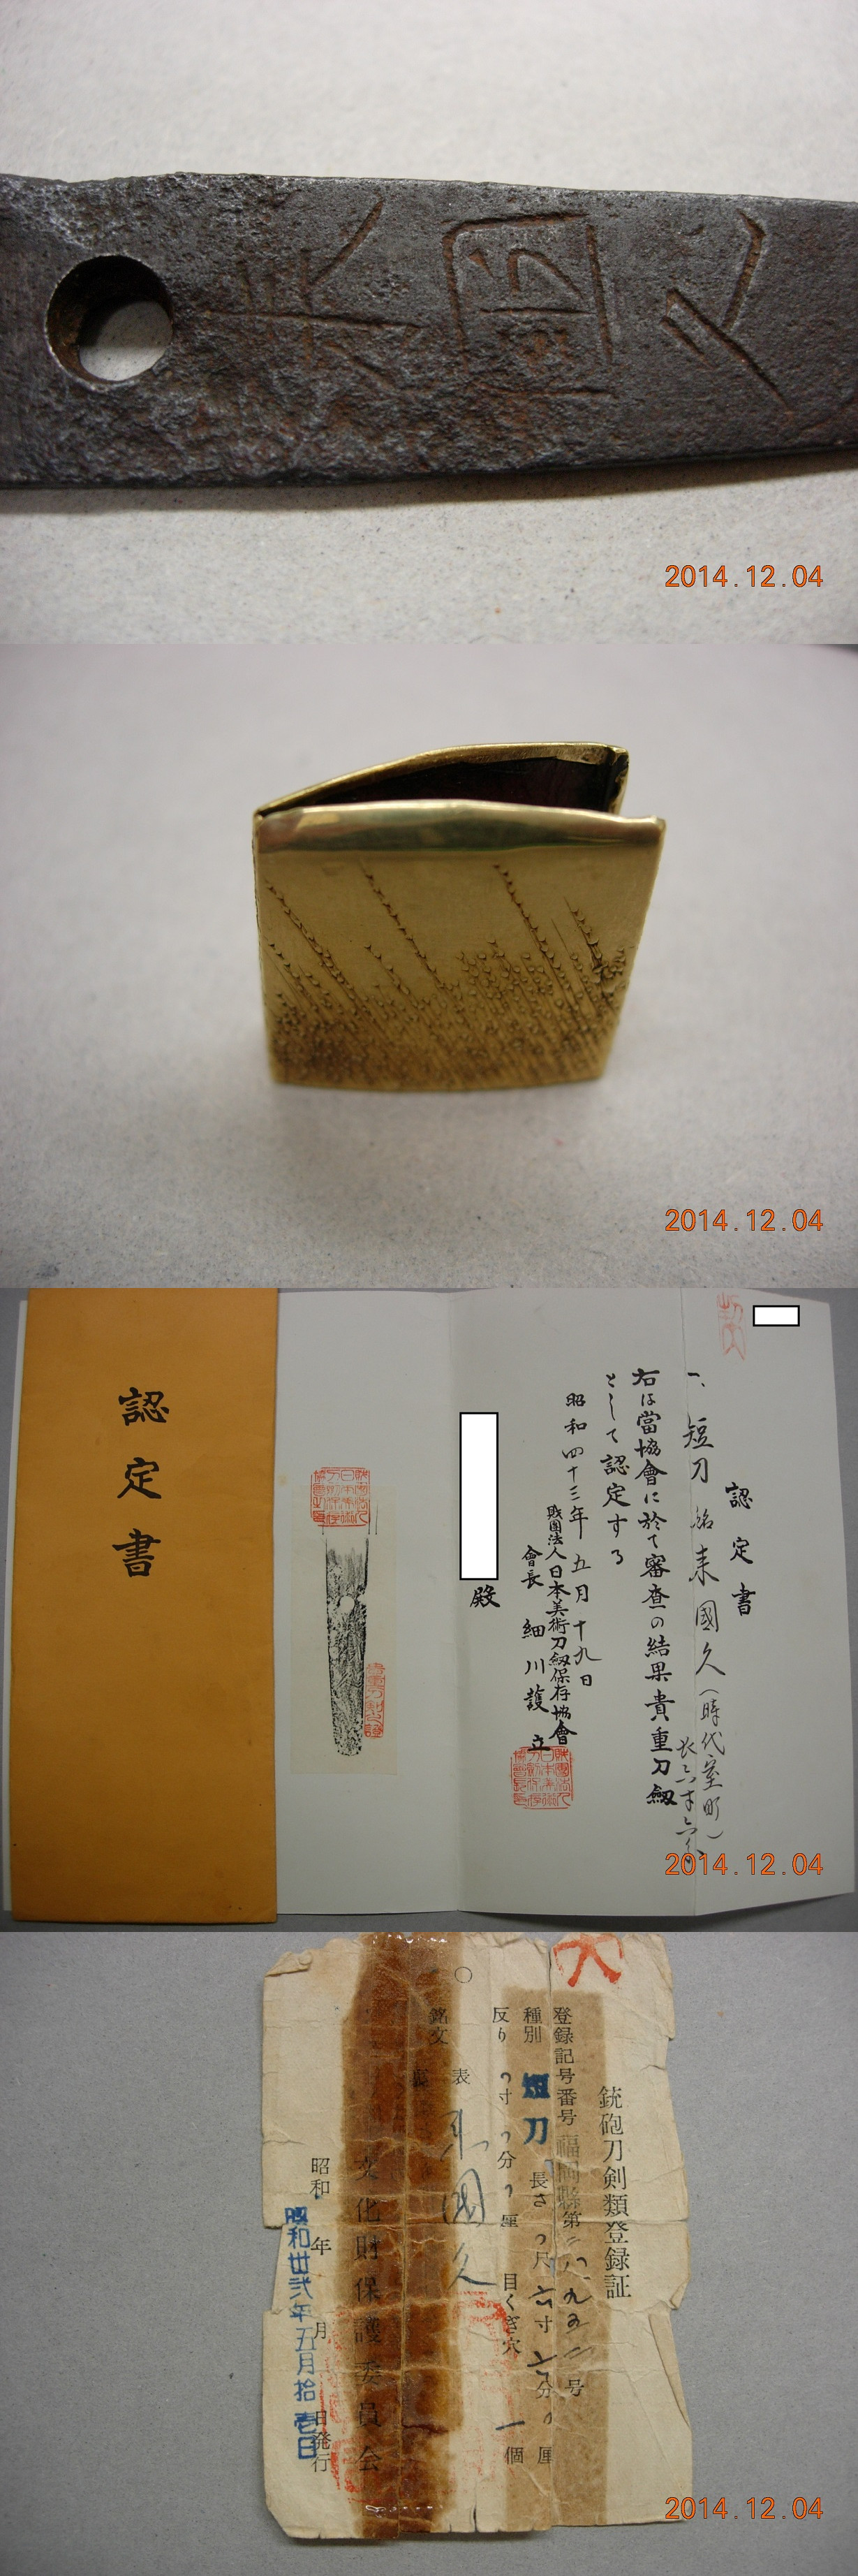 來國久
2014.12.04
2014.12.04
認定書
認定書
一、短刀 銘 来國久(時代室町)
長六寸六分
右は當協會に於て審査の結果貴重刀劔
として認定する
昭和四十三年五月十九日
財團法人日本美術刀劔保存協會
會長 細川護立
殿
2014.12.04
銃砲刀剣類登録証
登録記号番号 福岡縣第二八九五二号
種別 短刀 長さ 尺六寸六分 厘
反り 寸 分 厘 目くぎ穴 一個
銘文 表 来國久
文化財保護委員会
昭和 年 月 日発行
昭和卅弐年五月拾壱日
2014.12.04